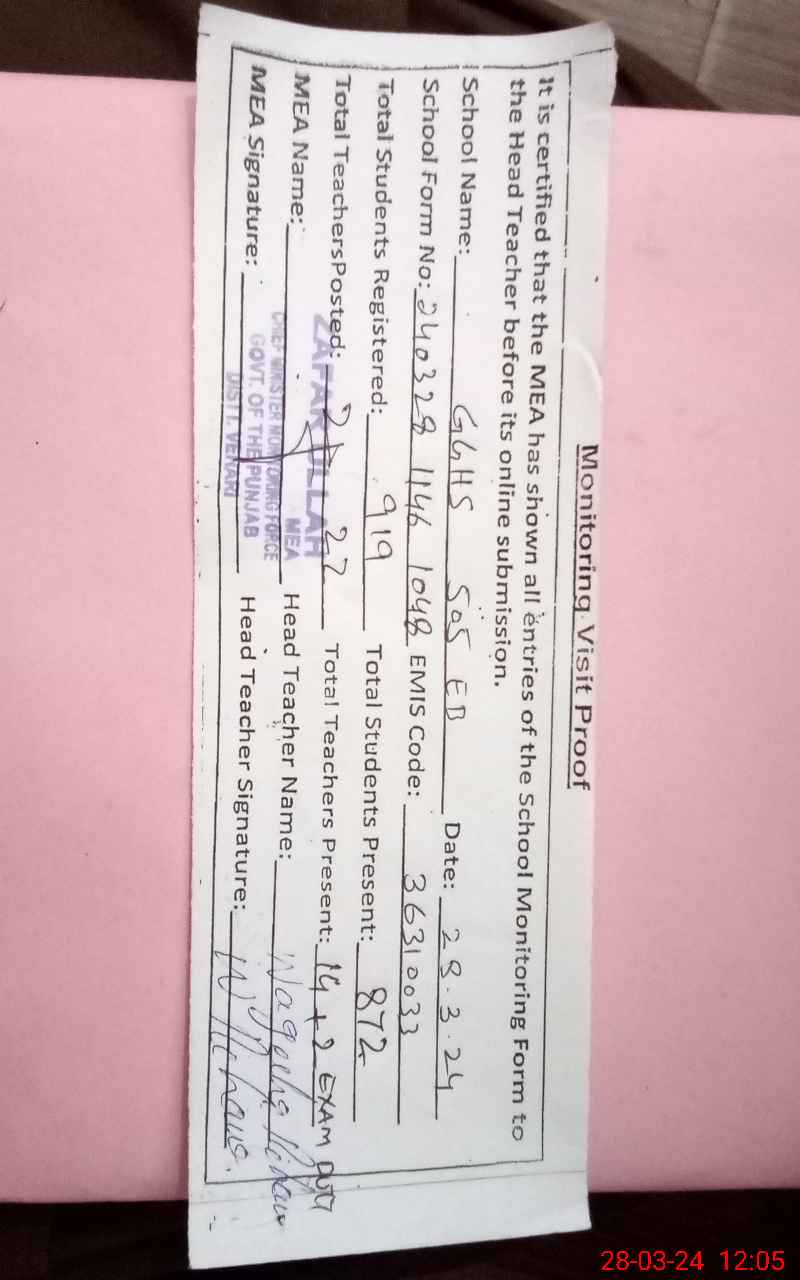 Monitoring Visit Proof
It is certified that the MEA has shown all entries of the School Monitoring Form to
the Head Teacher before its online submission.
School Name: GGHS 505 EB Date: 28.3.24
School Form No: 240328 1146 1048 EMIS Code: 36310033
Total Students Registered: 919 Total Students Present: 872
Total TeachersPosted: 22 Total Teachers Present: 14+2 EXAM DUTY
MEA Name: Head Teacher Name:
MEA Signature: Head Teacher Signature:
ZAFAR ULLAH
MEA
CHIEF MINISTER MONITORING FORCE
GOVT. OF THE PUNJAB
DISTT. VEHARI
28-03-24 12:05